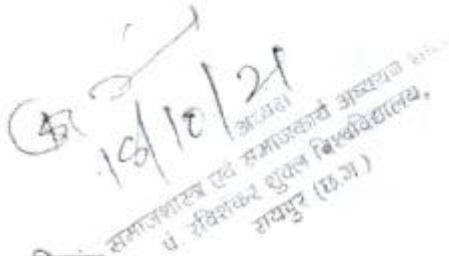 18/10/21
अध्यक्ष
समाजशास्त्र एवं समाजकार्य अध्ययन
पं. रविशंकर शुक्ल विश्वविद्यालय,
रायपुर (छ.ग.)